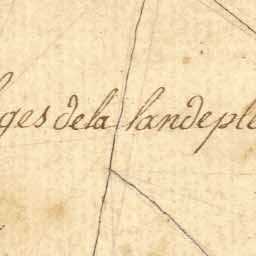 ges dela landeple